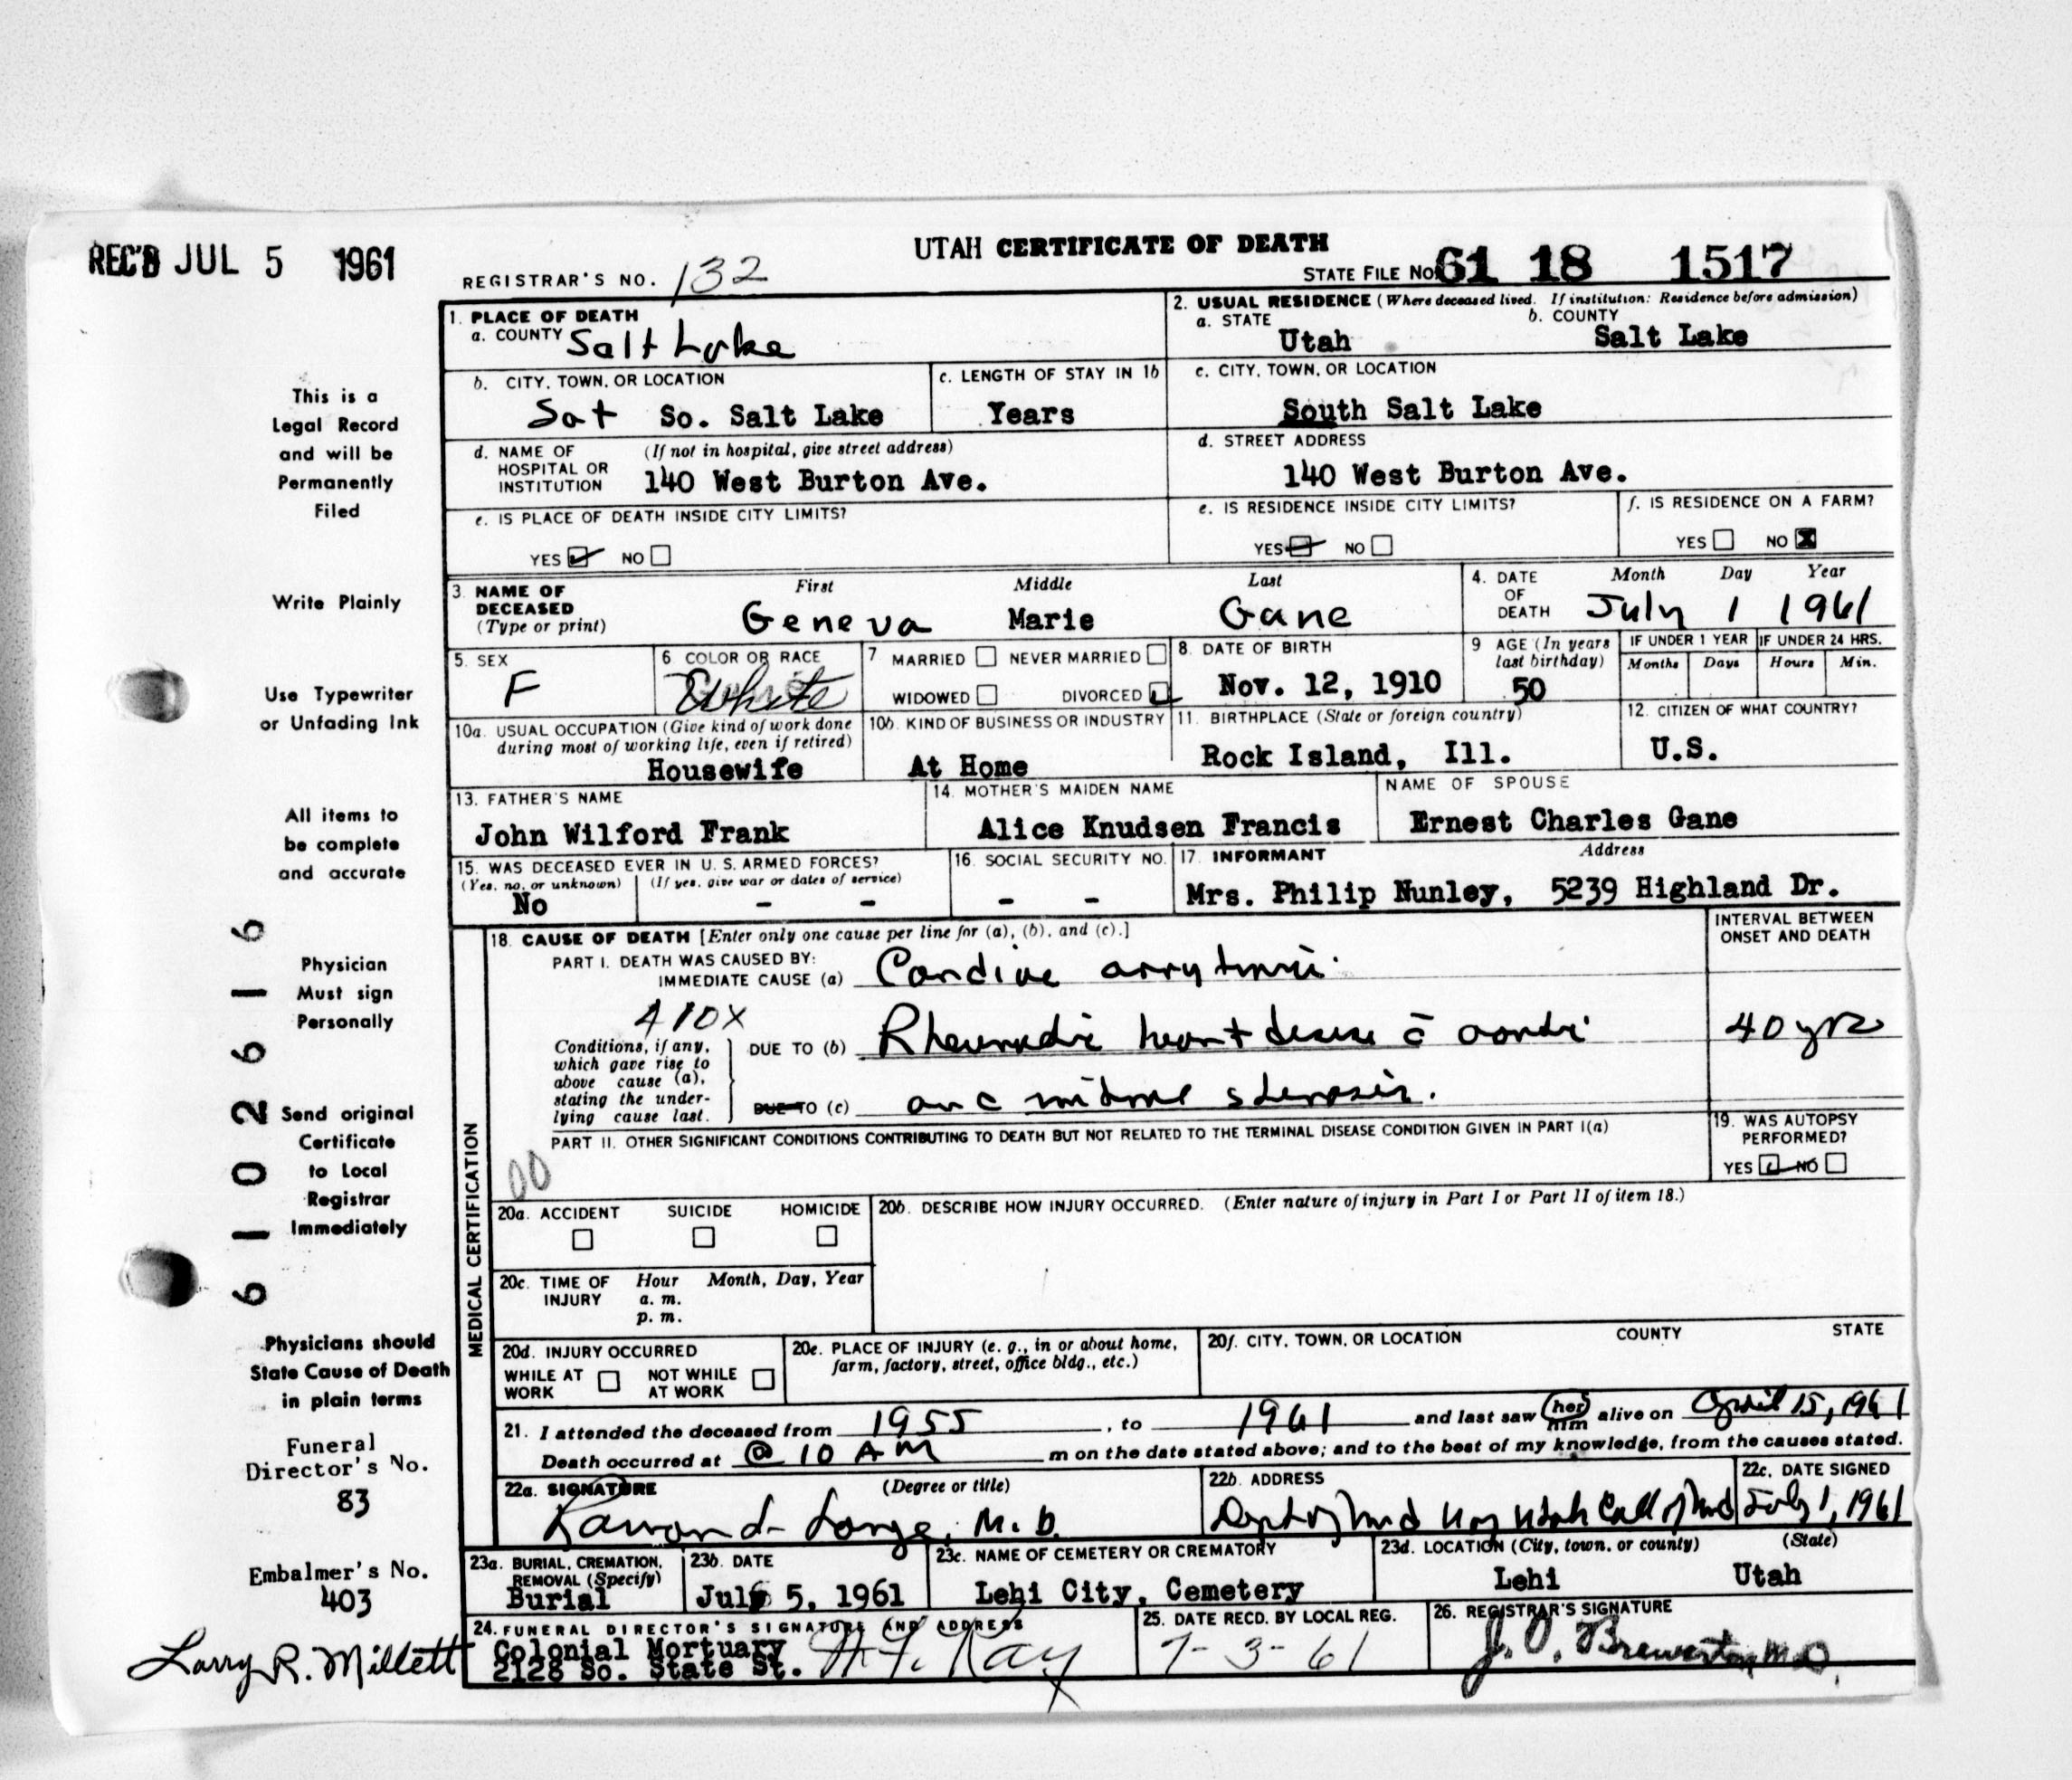 REC'D JUL 5 1961
UTAH CERTIFICATE OF DEATH
REGISTRAR'S NO. 132
STATE FILE NO. 61 18 1517
1. PLACE OF DEATH
a. COUNTY Salt Lake
2. USUAL RESIDENCE (Where deceased lived. If institution: Residence before admission)
a. STATE Utah
b. COUNTY Salt Lake
b. CITY, TOWN, OR LOCATION
Sat So. Salt Lake
c. LENGTH OF STAY IN 1b
Years
c. CITY, TOWN, OR LOCATION
South Salt Lake
d. NAME OF HOSPITAL OR INSTITUTION
(If not in hospital, give street address)
140 West Burton Ave.
d. STREET ADDRESS
140 West Burton Ave.
e. IS PLACE OF DEATH INSIDE CITY LIMITS?
YES NO
e. IS RESIDENCE INSIDE CITY LIMITS?
YES NO
f. IS RESIDENCE ON A FARM?
YES NO X
3. NAME OF DECEASED (Type or print)
First Middle Last
Geneva Marie Gane
4. DATE OF DEATH
Month Day Year
July 1 1961
5. SEX
F
6 COLOR OR RACE
White
7 MARRIED NEVER MARRIED
WIDOWED DIVORCED
8. DATE OF BIRTH
Nov. 12, 1910
9 AGE (In years last birthday)
50
IF UNDER 1 YEAR
Months Days
IF UNDER 24 HRS.
Hours Min.
10a. USUAL OCCUPATION (Give kind of work done during most of working life, even if retired)
Housewife
10b. KIND OF BUSINESS OR INDUSTRY
At Home
11. BIRTHPLACE (State or foreign country)
Rock Island, Ill.
12. CITIZEN OF WHAT COUNTRY?
U.S.
13. FATHER'S NAME
John Wilford Frank
14. MOTHER'S MAIDEN NAME
Alice Knudsen Francis
NAME OF SPOUSE
Ernest Charles Gane
15. WAS DECEASED EVER IN U. S. ARMED FORCES?
(Yes, no, or unknown) (If yes, give war or dates of service)
No - -
16. SOCIAL SECURITY NO.
- -
17. INFORMANT Address
Mrs. Philip Nunley, 5239 Highland Dr.
MEDICAL CERTIFICATION
18. CAUSE OF DEATH [Enter only one cause per line for (a), (b), and (c).]
INTERVAL BETWEEN ONSET AND DEATH
PART I. DEATH WAS CAUSED BY:
IMMEDIATE CAUSE (a)
410X
Conditions, if any, which gave rise to above cause (a), stating the underlying cause last.
DUE TO (b) Rheumatic heart disease c̄
40 yrs
DUE TO (c) stenosis.
PART II. OTHER SIGNIFICANT CONDITIONS CONTRIBUTING TO DEATH BUT NOT RELATED TO THE TERMINAL DISEASE CONDITION GIVEN IN PART I(a)
00
19. WAS AUTOPSY PERFORMED?
YES NO
20a. ACCIDENT SUICIDE HOMICIDE
20b. DESCRIBE HOW INJURY OCCURRED. (Enter nature of injury in Part I or Part II of item 18.)
20c. TIME OF INJURY
Hour Month, Day, Year
a. m.
p. m.
20d. INJURY OCCURRED
WHILE AT WORK NOT WHILE AT WORK
20e. PLACE OF INJURY (e. g., in or about home, farm, factory, street, office bldg., etc.)
20f. CITY, TOWN, OR LOCATION COUNTY STATE
21. I attended the deceased from 1955, to 1961 and last saw her him alive on April 15, 1961
Death occurred at @ 10 AM m on the date stated above; and to the best of my knowledge, from the causes stated.
22a. SIGNATURE (Degree or title)
M. D.
22b. ADDRESS
22c. DATE SIGNED
July 1, 1961
23a. BURIAL, CREMATION, REMOVAL (Specify)
Burial
23b. DATE
July 5, 1961
23c. NAME OF CEMETERY OR CREMATORY
Lehi City, Cemetery
23d. LOCATION (City, town, or county) (State)
Lehi Utah
24. FUNERAL DIRECTOR'S SIGNATURE AND ADDRESS
Colonial Mortuary
2128 So. State St.
25. DATE RECD. BY LOCAL REG.
7-3-61
26. REGISTRAR'S SIGNATURE
J. O. Brewerton M.D.
This is a
Legal Record
and will be
Permanently
Filed
Write Plainly
Use Typewriter
or Unfading Ink
All items to
be complete
and accurate
Physician
Must sign
Personally
Send original
Certificate
to Local
Registrar
Immediately
Physicians should
State Cause of Death
in plain terms
Funeral
Director's No.
83
Embalmer's No.
403
Larry R. Millett